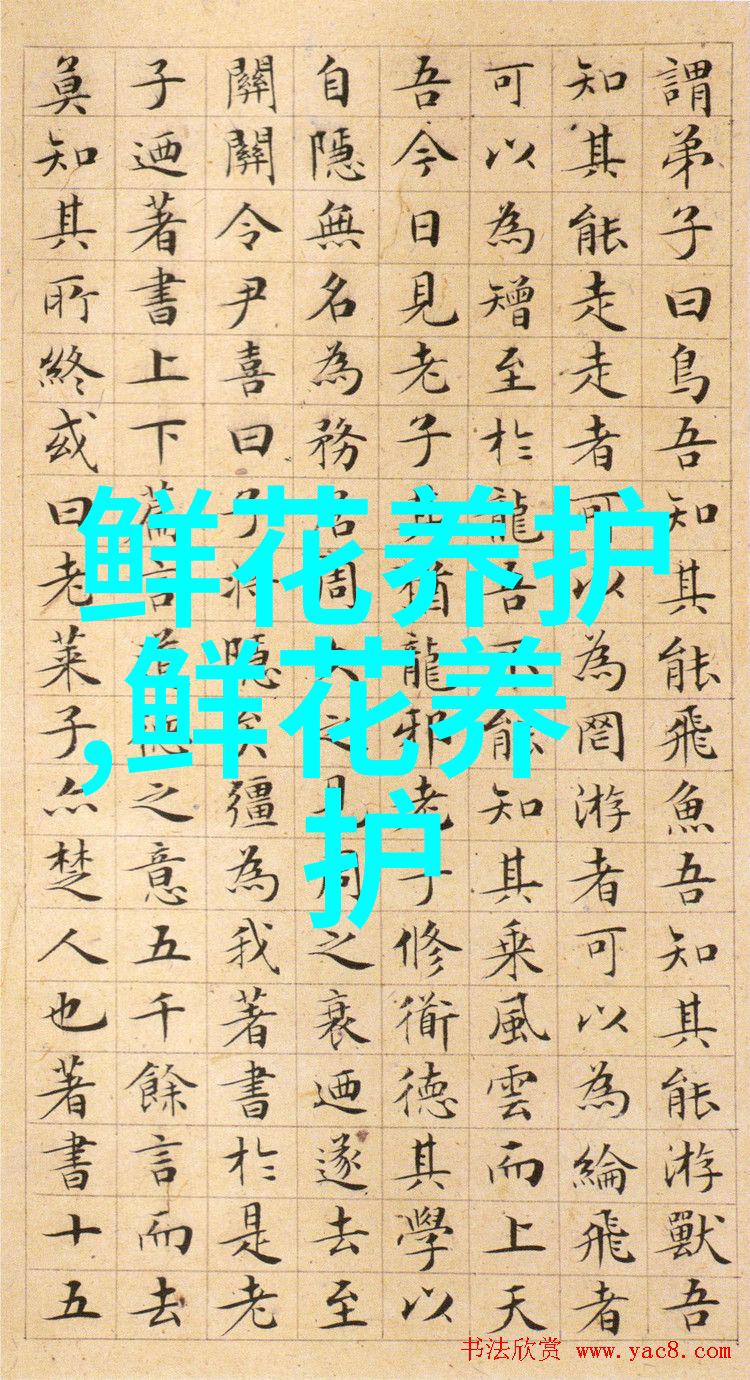 謂弟子曰鳥吾知其能飛魚吾知其能游獸吾
知其能走走者可以為罔游者可以為綸飛者
可以為矰至於龍吾不能知其乘風雲而上天
吾今日見老子其猶龍邪老子修衟德其學以
自隱無名為務居周久之見周之衰迺遂去至
關關令尹喜曰子將隱矣彊為我著書於是老
子迺著書上下篇言道德之意五千餘言而去
莫知其所終或曰老萊子亦楚人也著書十五
鲜花养护
,鲜花养
护
书法欣赏 www.yac8.com